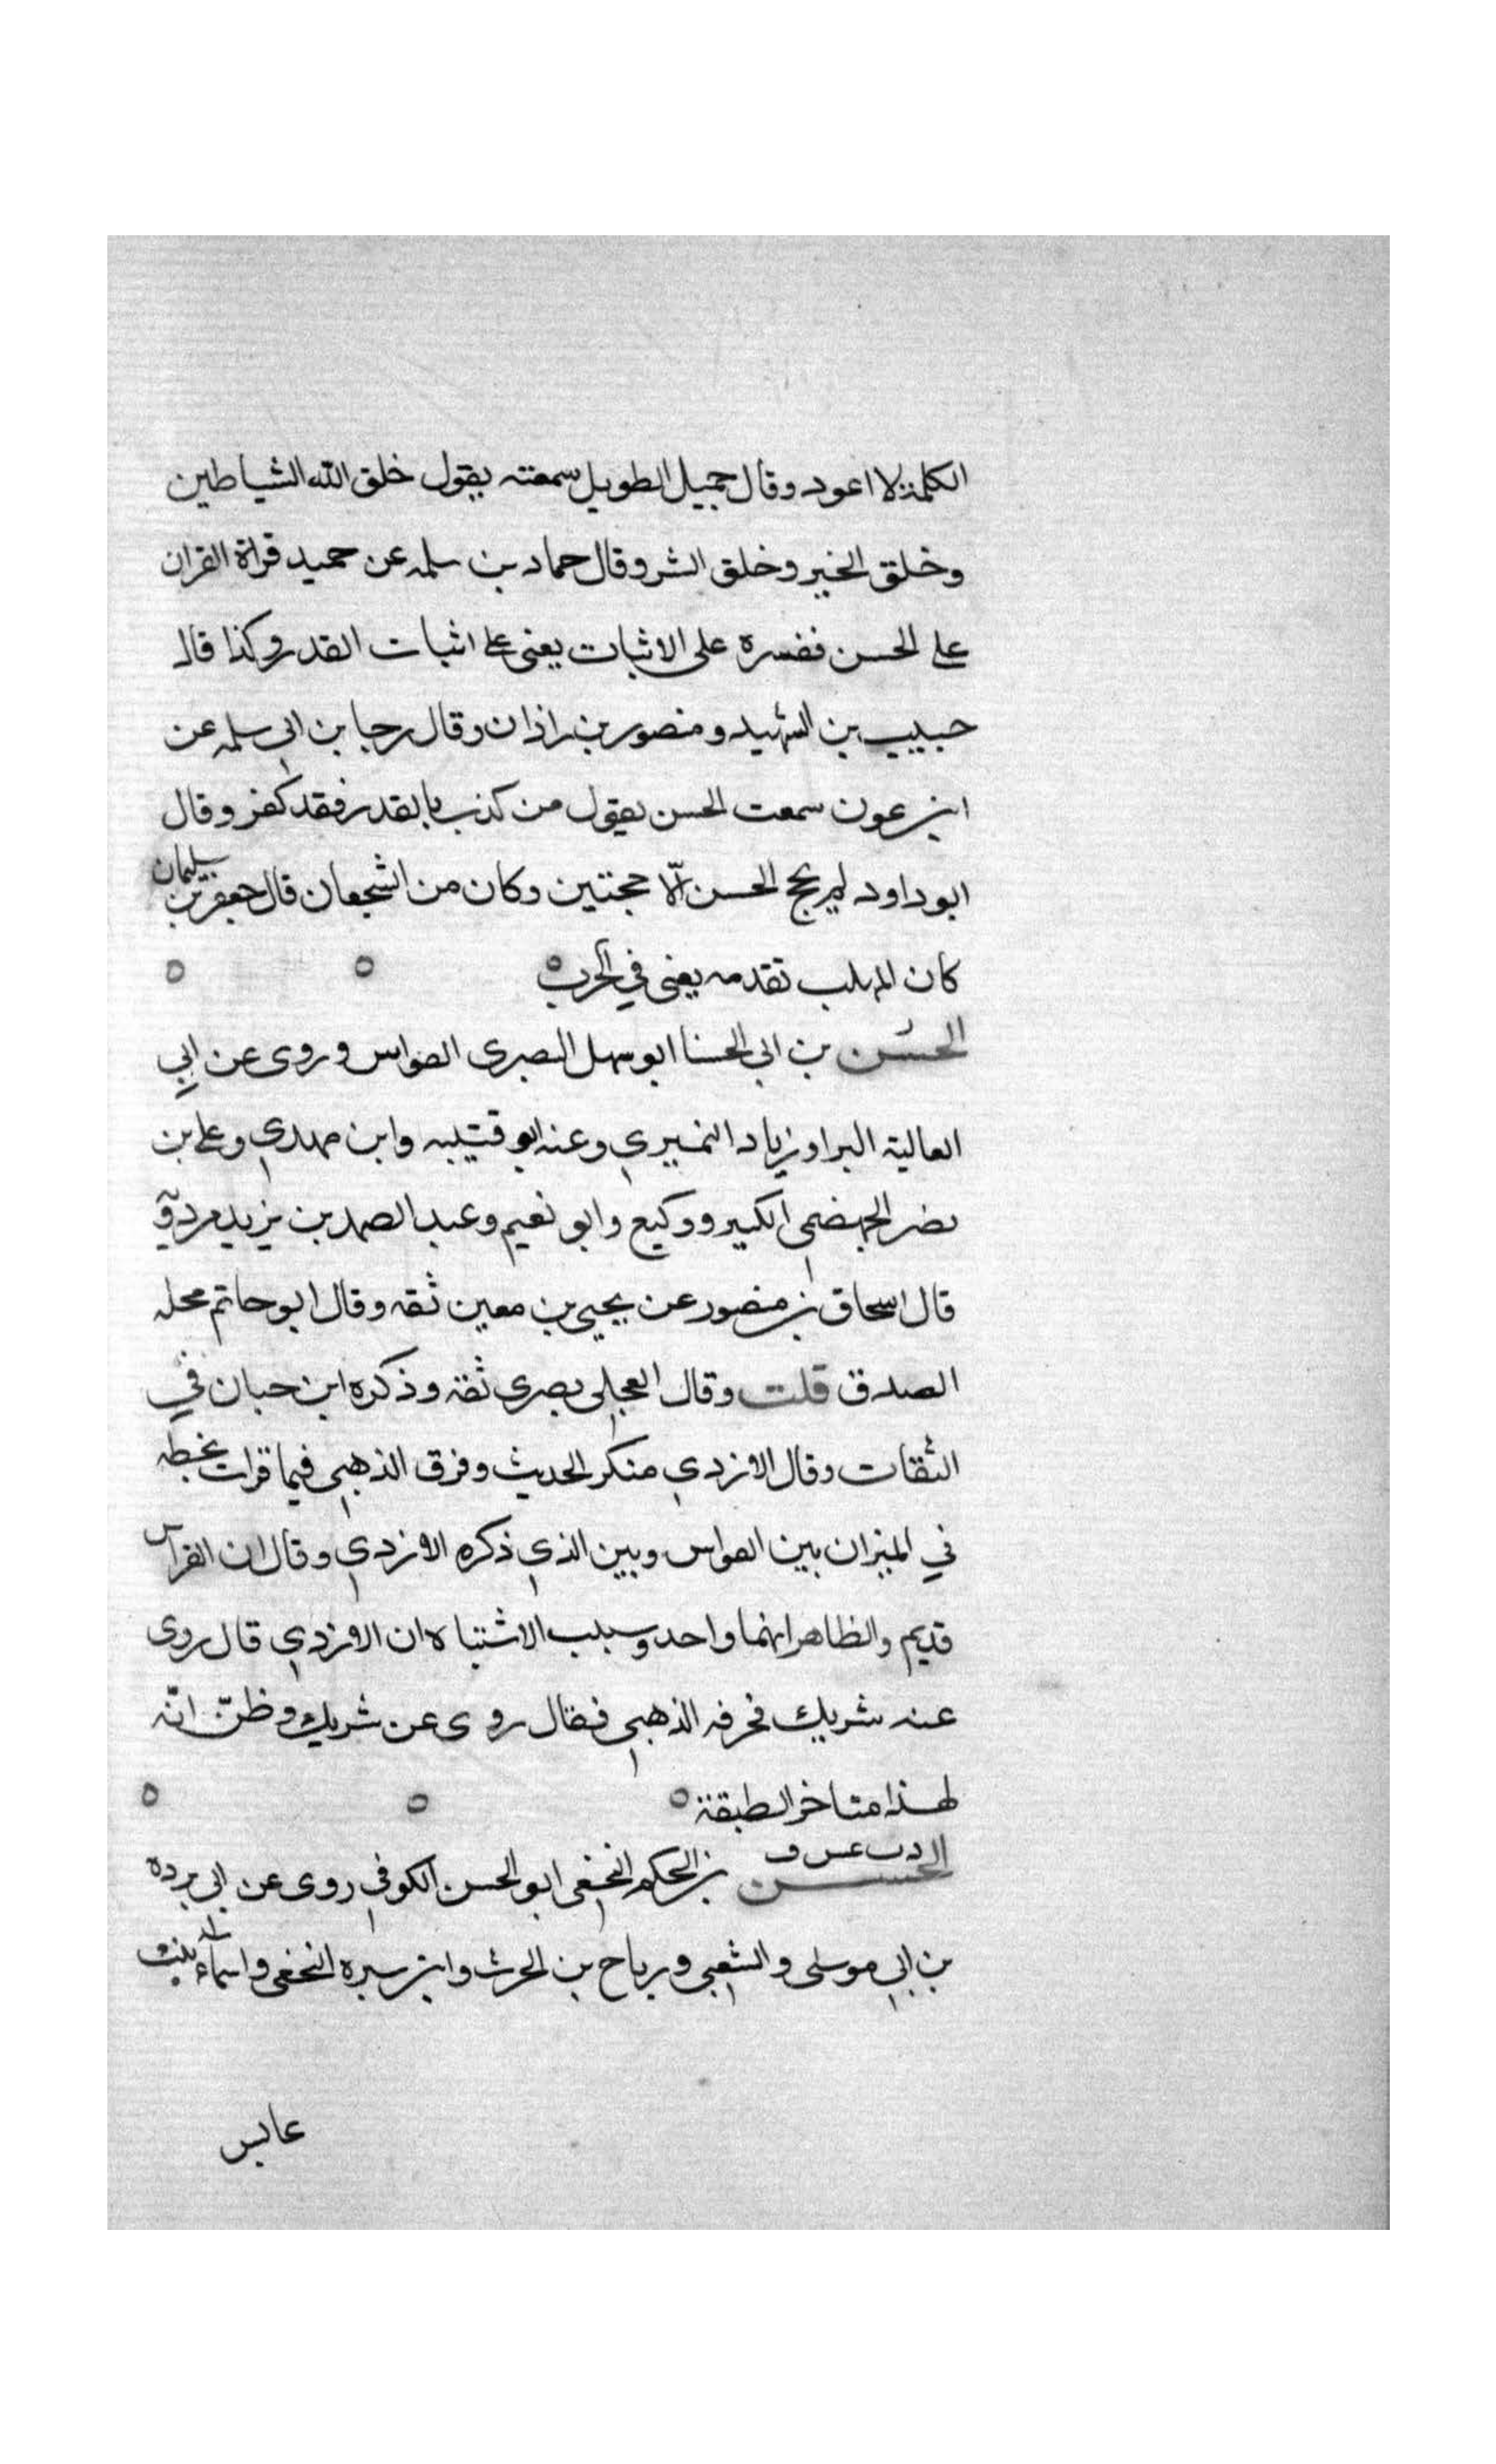 الكلمة لا اعود وقال حميل الطويل سمعته يقول خلق الله الشياطين
وخلق الخير وخلق الشر وقال حماد بن سلمه عن حميد قراة القران
على الحسن ففسره على الاثبات يعني على اثبات القدر وكذا قال
حبيب بن الشهيد ومنصور بن زاذان وقال رجا بن ابي سلمه عن
ابن عون سمعت الحسن يقول من كذب بالقدر فقد كفر وقال
ابو داود لم يحج الحسن الّا حجتين وكان من الشجعان قال جعفر بن سليمان
كان المهلب تقدمه يعني في الحرب ه ه ه
الحسن بن ابي الحسنا ابو سهل البصري القواس وروى عن ابي
العالية البرا وزياد النميري وعنه ابو قتيبه وابن مهدي وعلي بن
نصر الجهضمي الكبير ووكيع وابو نعيم وعبد الصمد بن يزيد مردويه
قال اسحاق بن منصور عن يحيى بن معين ثقه وقال ابو حاتم محله
الصدق قلت وقال العجلي بصري ثقة وذكره ابن حبان في
الثقات وقال الازدي منكر الحديث وفرق الذهبي فيما قرات بخطه
في الميزان بين القواس وبين الذي ذكره الازدي وقال ان القواس
قديم والظاهر انهما واحد وسبب الاشتباه ان الازدي قال روى
عنه شريك فحرفه الذهبي فقال روى عن شريك وظنّ انّه
لهذا متاخر الطبقة ه ه ه
الحسن بن الحكم النخعي ابو الحسن الكوفي روى عن ابي برده
بن ابي موسى والشعبي ورباح بن الحرث وابن سبره النخعي واسماء بنت
عابس